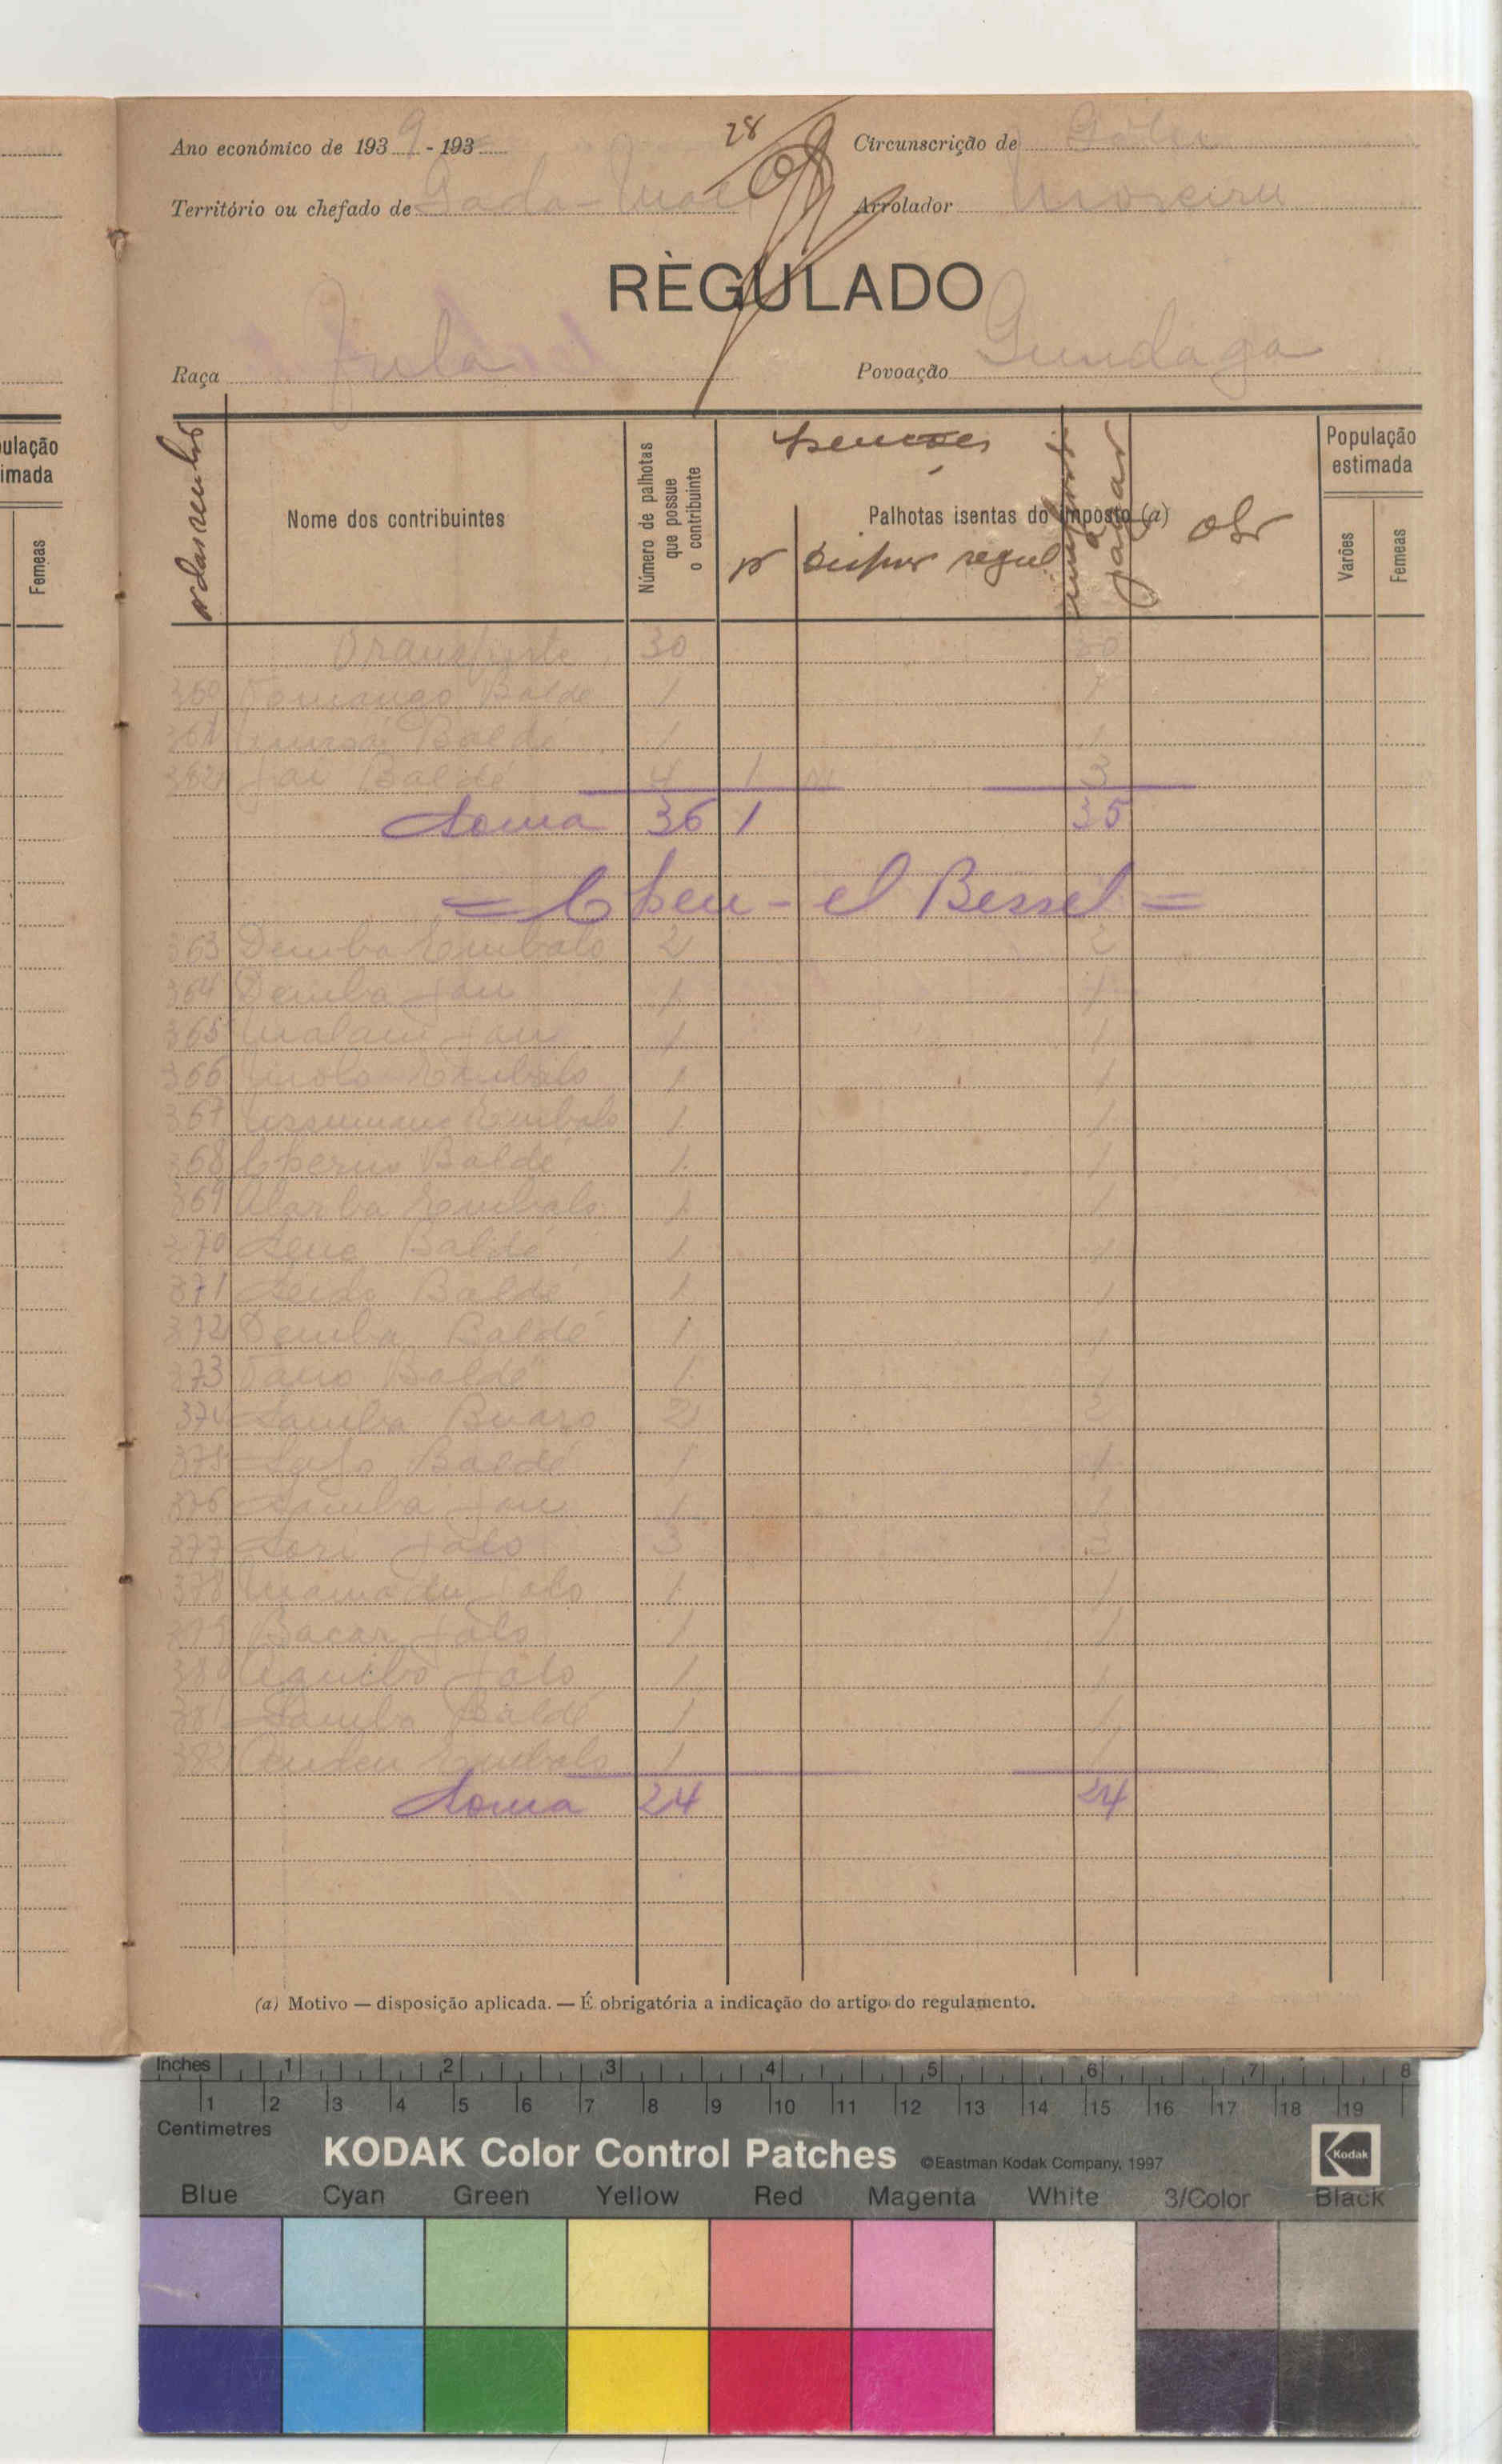 28
Ano económico de 1939 - 193
Circunscrição de
Território ou chefado de Gada-
Arrolador Moreira
RÈGULADO
Raça Fula
Povoação Gundaga
ulação
imada
Femeas
Nome dos contribuintes
Número de palhotas
que possue
o contribuinte
Palhotas isentas do imposto (a)
População
estimada
Varões
Femeas
Transporte 30 30
360 Baldé 1 1
361 Baldé 1 1
362 Jai Baldé 4 1 3
Soma 36 1 35
= Cheu - el Bessel =
363 Demba Embalo 2 2
364 Demba Jau 1 1
365 Malam Jau 1 1
366 Molo Embalo 1 1
367 Embalo 1 1
368 Cherno Baldé 1 1
369 Embalo 1 1
370 Baldé 1 1
371 Seido Baldé 1 1
372 Demba Baldé 1 1
373 Baldé 1
374 Samba Buaro 2 2
375 Baldé 1 1
376 Samba Jau 1 1
377 Sori Jalo 3 3
378 Mamadu Jalo 1 1
379 Bacar Jalo 1 1
380 Aguibo Jalo 1 1
381 Samba Baldé 1 1
382 Embalo 1 1
Soma 24 24
(a) Motivo — disposição aplicada. — É obrigatória a indicação do artigo do regulamento.
Inches 1 2 3 4 5 6 7 8
1 2 3 4 5 6 7 8 9 10 11 12 13 14 15 16 17 18 19
Centimetres
KODAK Color Control Patches ©Eastman Kodak Company, 1997 Kodak
Blue Cyan Green Yellow Red Magenta White 3/Color Black